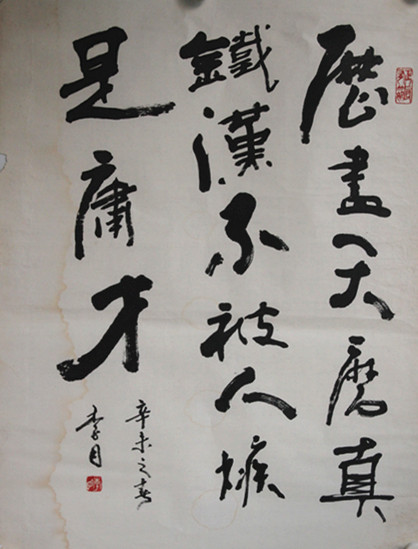 歷盡天磨真
鐵漢不被人嫉
是庸才
辛未之春
李月